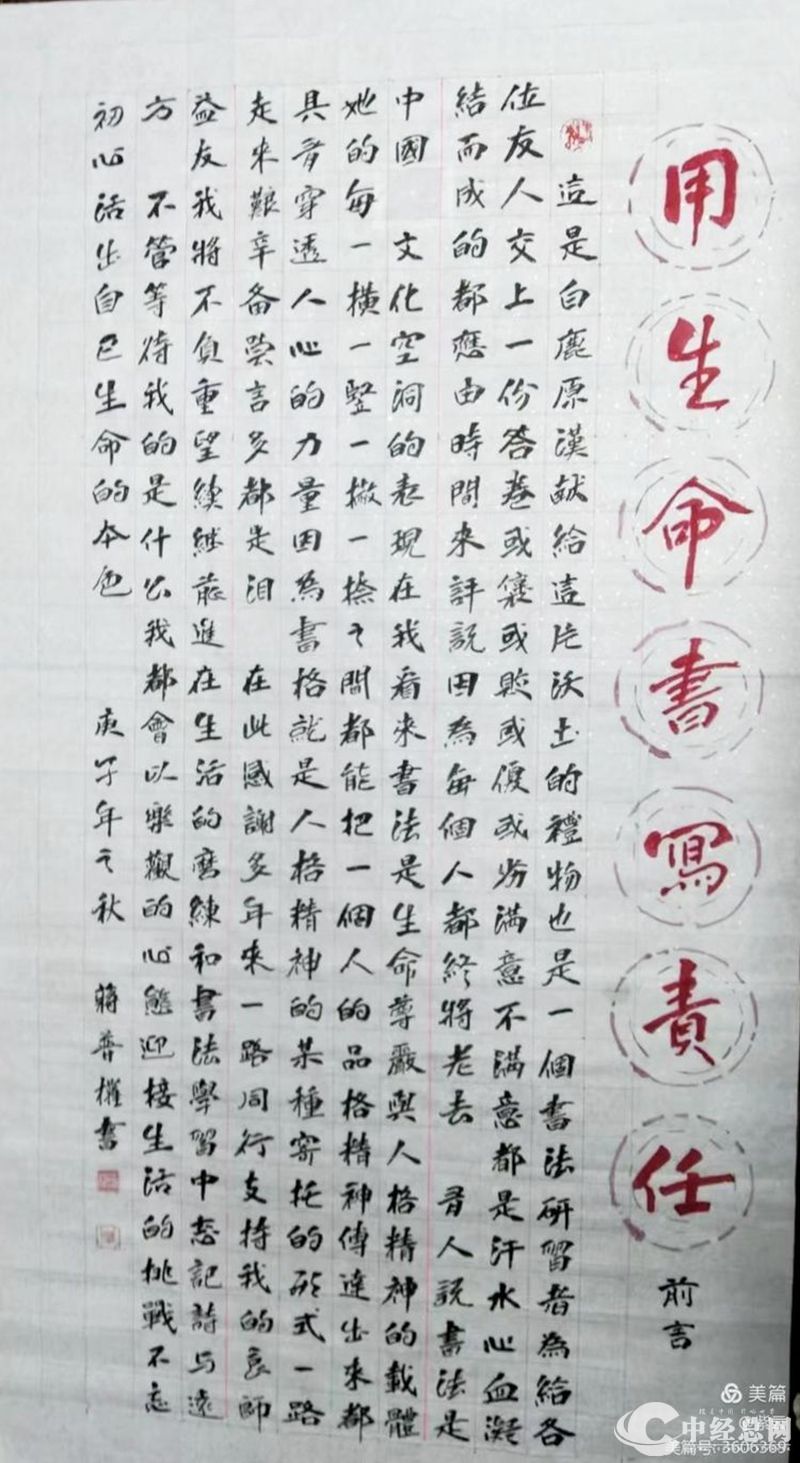 用生命書寫責任 前言
這是白鹿原漢献給這片沃土的禮物也是一個書法研習者為給各
位友人交上一份答卷或襃或貶或優或劣滿意不滿意都是汗水心血凝
結而成的都應由時間來評説因為每個人都終將老去 有人説書法是
中國 文化空洞的表現在我看來書法是生命尊嚴與人格精神的載體
她的每一橫一竪一撇一捺之間都能把一個人的品格精神傳達出來都
具有穿透人心的力量因為書格就是人格精神的某種寄托的形式一路
走來艱辛备嘗言多都是泪 在此感謝多年來一路同行支持我的良師
益友我將不負重望續継前進在生活的磨練和書法學習中忘記詩与遠
方 不管等待我的是什么我都會以樂觀的心態迎接生活的挑戰不忘
初心活出自己生命的本色 庚子年之秋 蔣普權書
美篇
中经总网
美篇号:3606369